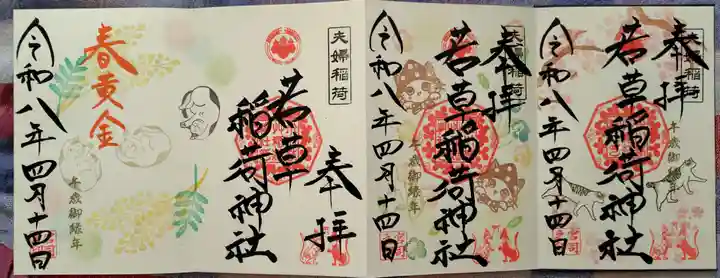 夫婦稲荷
奉拝
若草稲荷神社
午歳御縁年
令和八年四月十四日
夫婦稲荷
奉拝
若草稲荷神社
午歳御縁年
令和八年四月十四日
夫婦稲荷
奉拝
若草
稲荷神社
春黄金
午歳御縁年
令和八年四月十四日